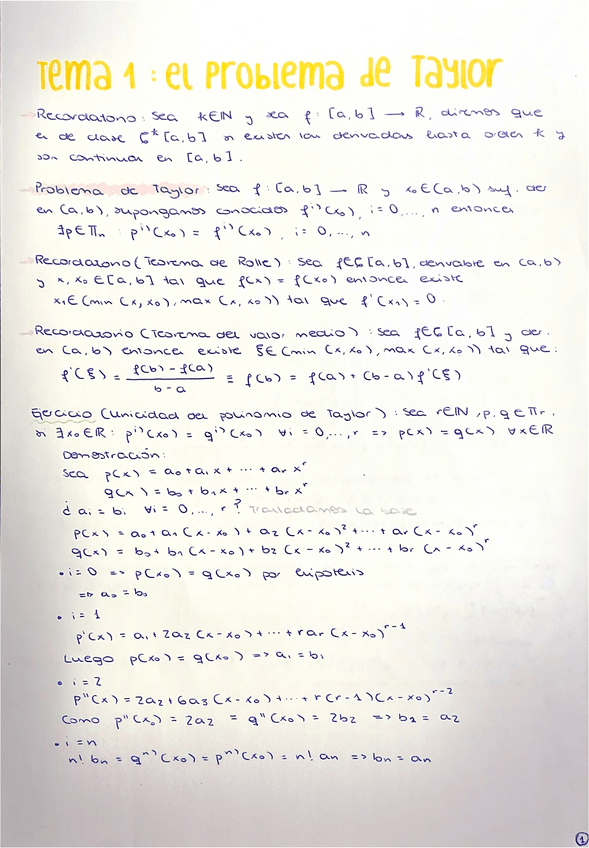 Tema 1 : el Problema de Taylor
Recordatorio : Sea k∈ℕ y sea f : [a,b] → ℝ, diremos que
es de clase C^k [a,b] si existen las derivadas hasta orden k y
son continuas en [a,b].
Problema de Taylor : Sea f : [a,b] → ℝ y x₀∈(a,b) suf. der
en (a,b), supongamos conocidos f^i)(x₀), i = 0,..., n entonces
∃p∈Πn : p^i)(x₀) = f^i)(x₀), i = 0,..., n
Recordatorio (Teorema de Rolle) : Sea f∈C[a,b], derivable en (a,b)
y x, x₀ ∈[a,b] tal que f(x) = f(x₀) entonces existe
x₁∈(min(x,x₀), max(x,x₀)) tal que f'(x₁) = 0.
Recordatorio (Teorema del valor medio) : Sea f∈C[a,b] y der.
en (a,b) entonces existe ξ∈(min(x,x₀), max(x,x₀)) tal que:
f'(ξ) = (f(b) - f(a))/(b-a) ≡ f(b) = f(a) + (b-a) f'(ξ)
Ejercicio (Unicidad del polinomio de Taylor) : Sea r∈ℕ, p, q∈Πr.
si ∃x₀∈ℝ : p^i)(x₀) = q^i)(x₀) ∀i = 0,...,r => p(x) = q(x) ∀x∈ℝ
Demostración:
Sea p(x) = a₀+a₁x + ··· + ar x^r
q(x) = b₀ + b₁x + ··· + br x^r
¿ ai = bi ∀i = 0,..., r ? Trasladamos la base
p(x) = a₀ + a₁ (x-x₀) + a₂ (x-x₀)² + ··· + ar (x-x₀)^r
q(x) = b₀ + b₁ (x-x₀) + b₂ (x-x₀)² + ··· + br (x-x₀)^r
• i = 0 => p(x₀) = q(x₀) por hipótesis
=> a₀ = b₀
• i = 1
p'(x) = a₁ + 2a₂ (x-x₀) + ··· + rar (x-x₀)^r-1
Luego p(x₀) = q(x₀) => a₁ = b₁
• i = 2
p''(x) = 2a₂ + 6a₃ (x-x₀) + ··· + r(r-1)(x-x₀)^r-2
Como p''(x₀) = 2a₂ = q''(x₀) = 2b₂ => b₂ = a₂
• i = n
n! bn = q^n)(x₀) = p^n)(x₀) = n! an => bn = an
1